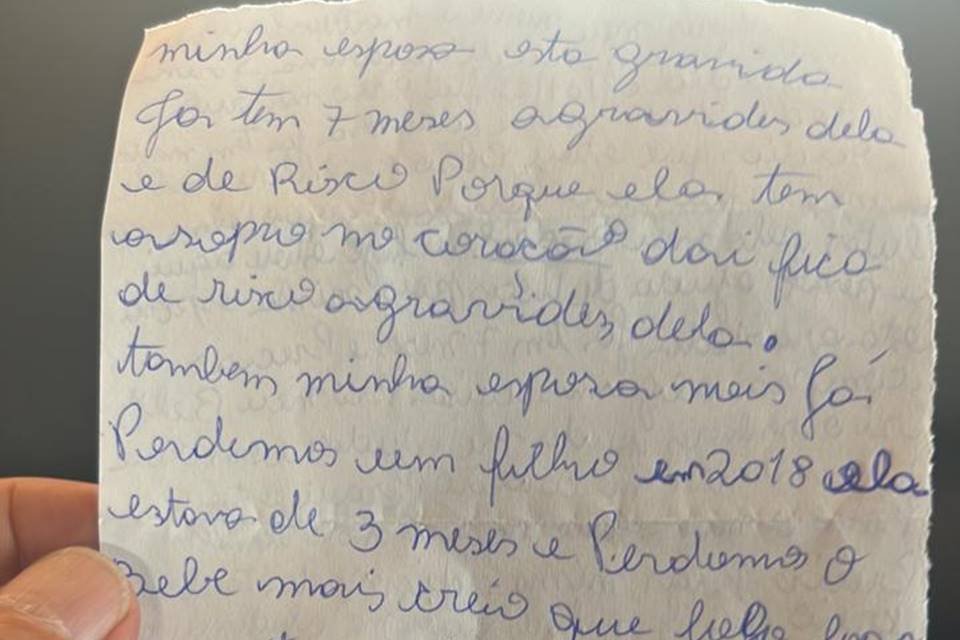 minha esposa esta gravida
Ja tem 7 meses agravides dela
e de Risco Porque ela tem
sopro no coração dai fica
de risco agravides dela.
tambem minha esposa mais Já
Perdemos um filho em 2018 ela
estava de 3 meses e Perdemos o
Bebe mais creio que